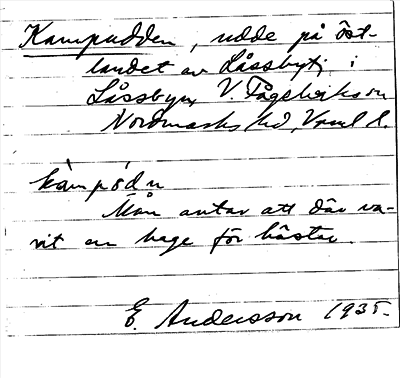 Kampudden, udde på öst-
landet av Låssbytj. i
Låssbyn, V. Fågelviks sn
Nordmarks hd, Vrml l.
kàmpòdn
Man antar att där va-
rit en hage för hästar.
E. Andersson 1935.